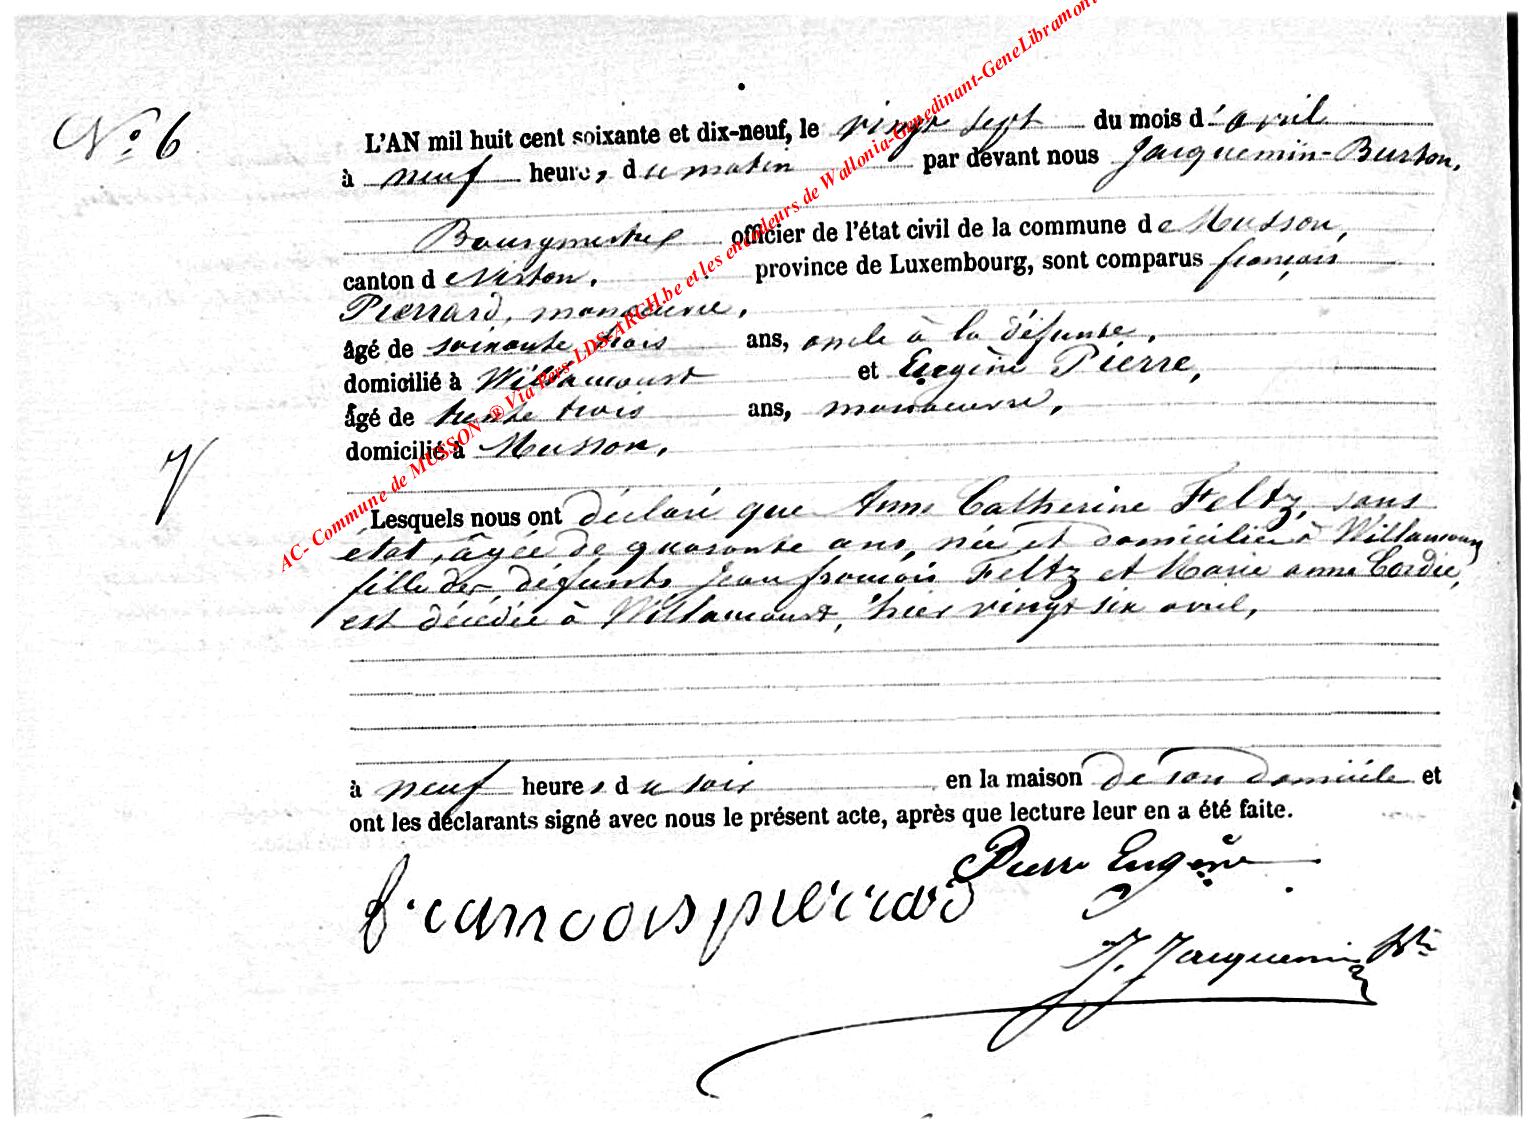 N° 6
L'AN mil huit cent soixante et dix-neuf, le vingt sept du mois d'avril
à neuf heures du matin par devant nous Jacquemin-Burton,
Bourgmestre officier de l'état civil de la commune de Musson,
canton de Virton, province de Luxembourg, sont comparus françois
Pierrard, manoeuvre,
âgé de soixante trois ans, oncle à la défunte,
domicilié à Willancourt et Eugène Pierre,
âgé de trente trois ans, manoeuvre,
domicilié à Musson,
Lesquels nous ont déclaré que Anne Catherine Feltz, sans
état, âgée de quarante ans, née et domiciliée à Willancourt
fille des défunts Jean françois Feltz et Marie anne Cordie,
est décédée à Willancourt, hier vingt six avril,
à neuf heures du soir en la maison de son domicile et
ont les déclarants signé avec nous le présent acte, après que lecture leur en a été faite.
Pierre Eugène
francois pierrard
J. Jacquemin
AC- Commune de MUSSON ® Via Pers-LDS-ARCH.be et les encodeurs de Wallonia-Genedinant-GeneLibramont